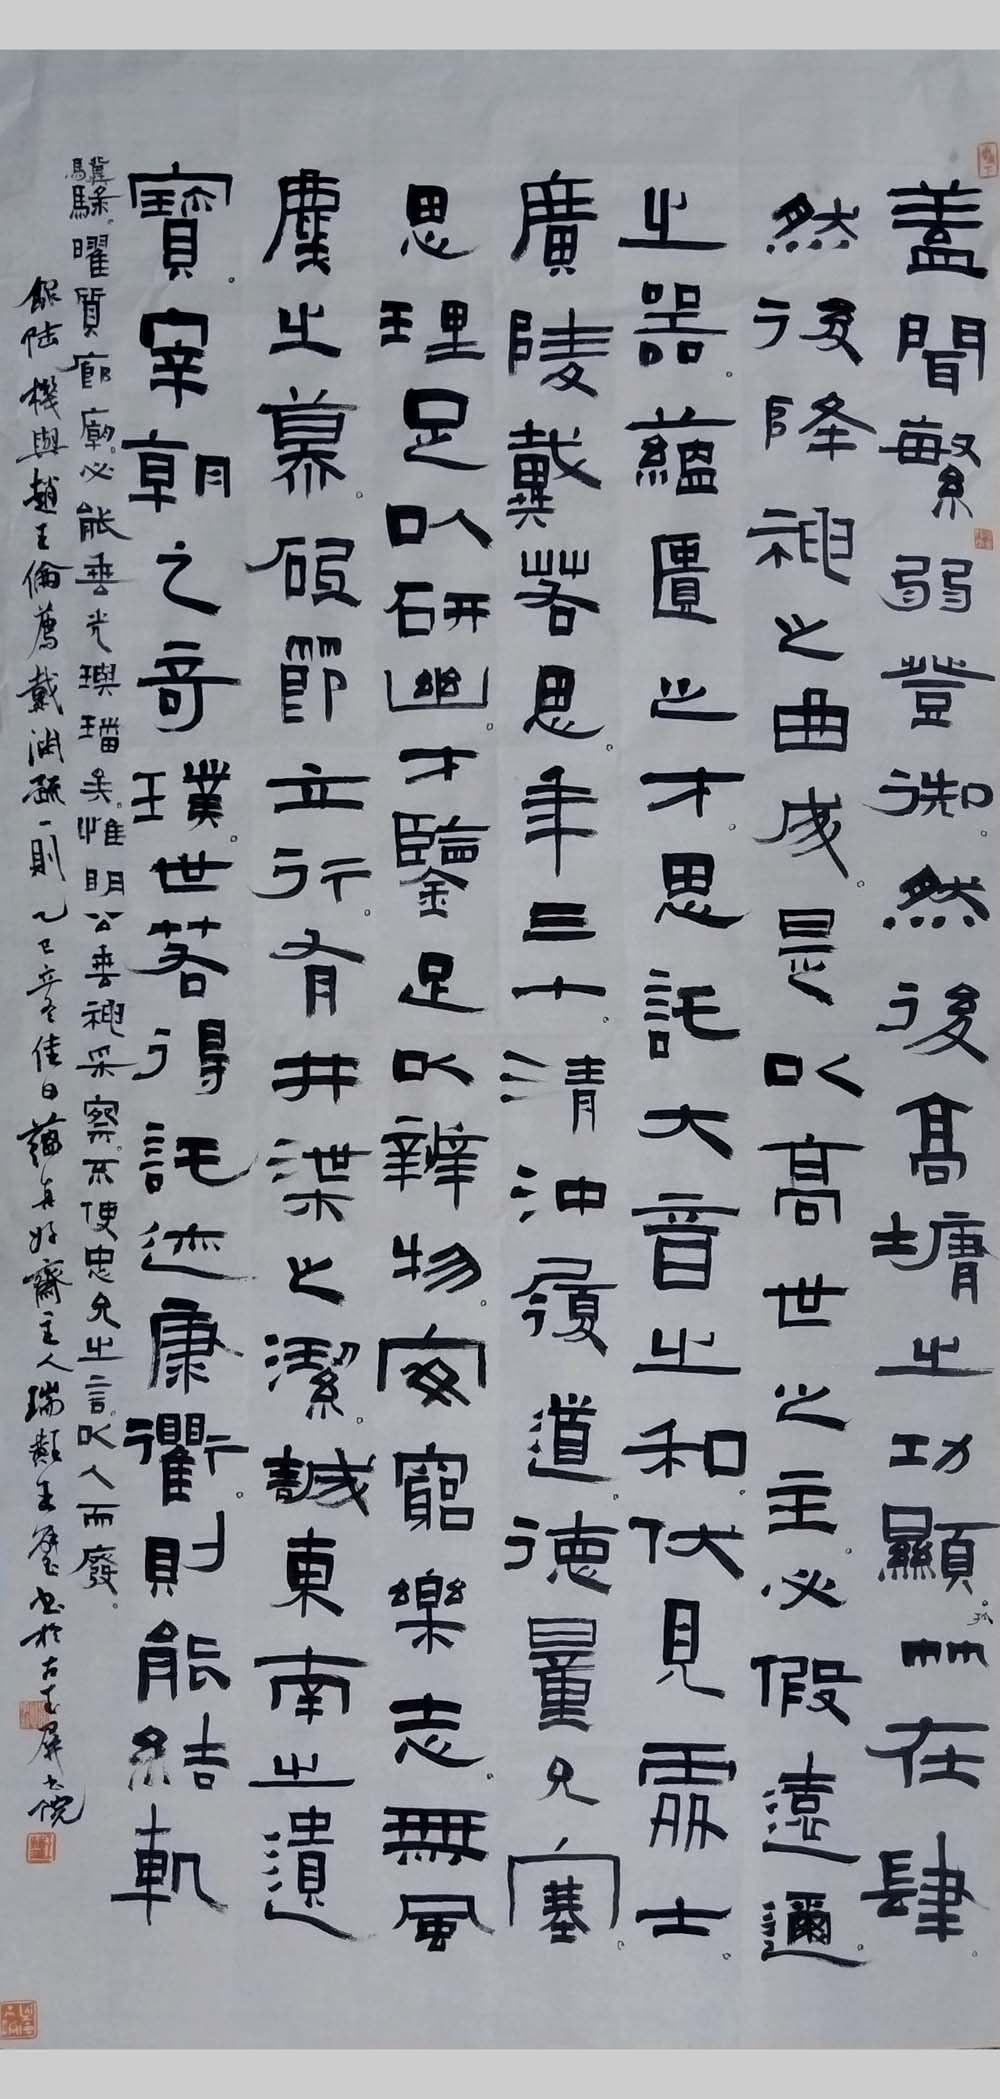 蓋聞繁弱登御。然後高墉之功顯。孤竹在肆。
然後降神之曲成。是以高世之主。必假遠邇
之器。蘊匱之才。思託大音之和。伏見處士。
廣陵戴若思。年三十。清沖履道。德量允塞。
思理足以研幽。才鑒足以辯物。安窮樂志。無風
塵之慕。砥節立行。有井渫之潔。誠東南之遺
寶。宰朝之奇璞。世若得託迹康衢。則能結軌
驥騄。曜質廊廟。必能垂光璵璠矣。惟明公垂神采察。不使忠允之言。以人而廢。
錄陸機與趙王倫薦戴淵疏一則 乙巳立冬佳日 主人瑞 書於古玉屏書院